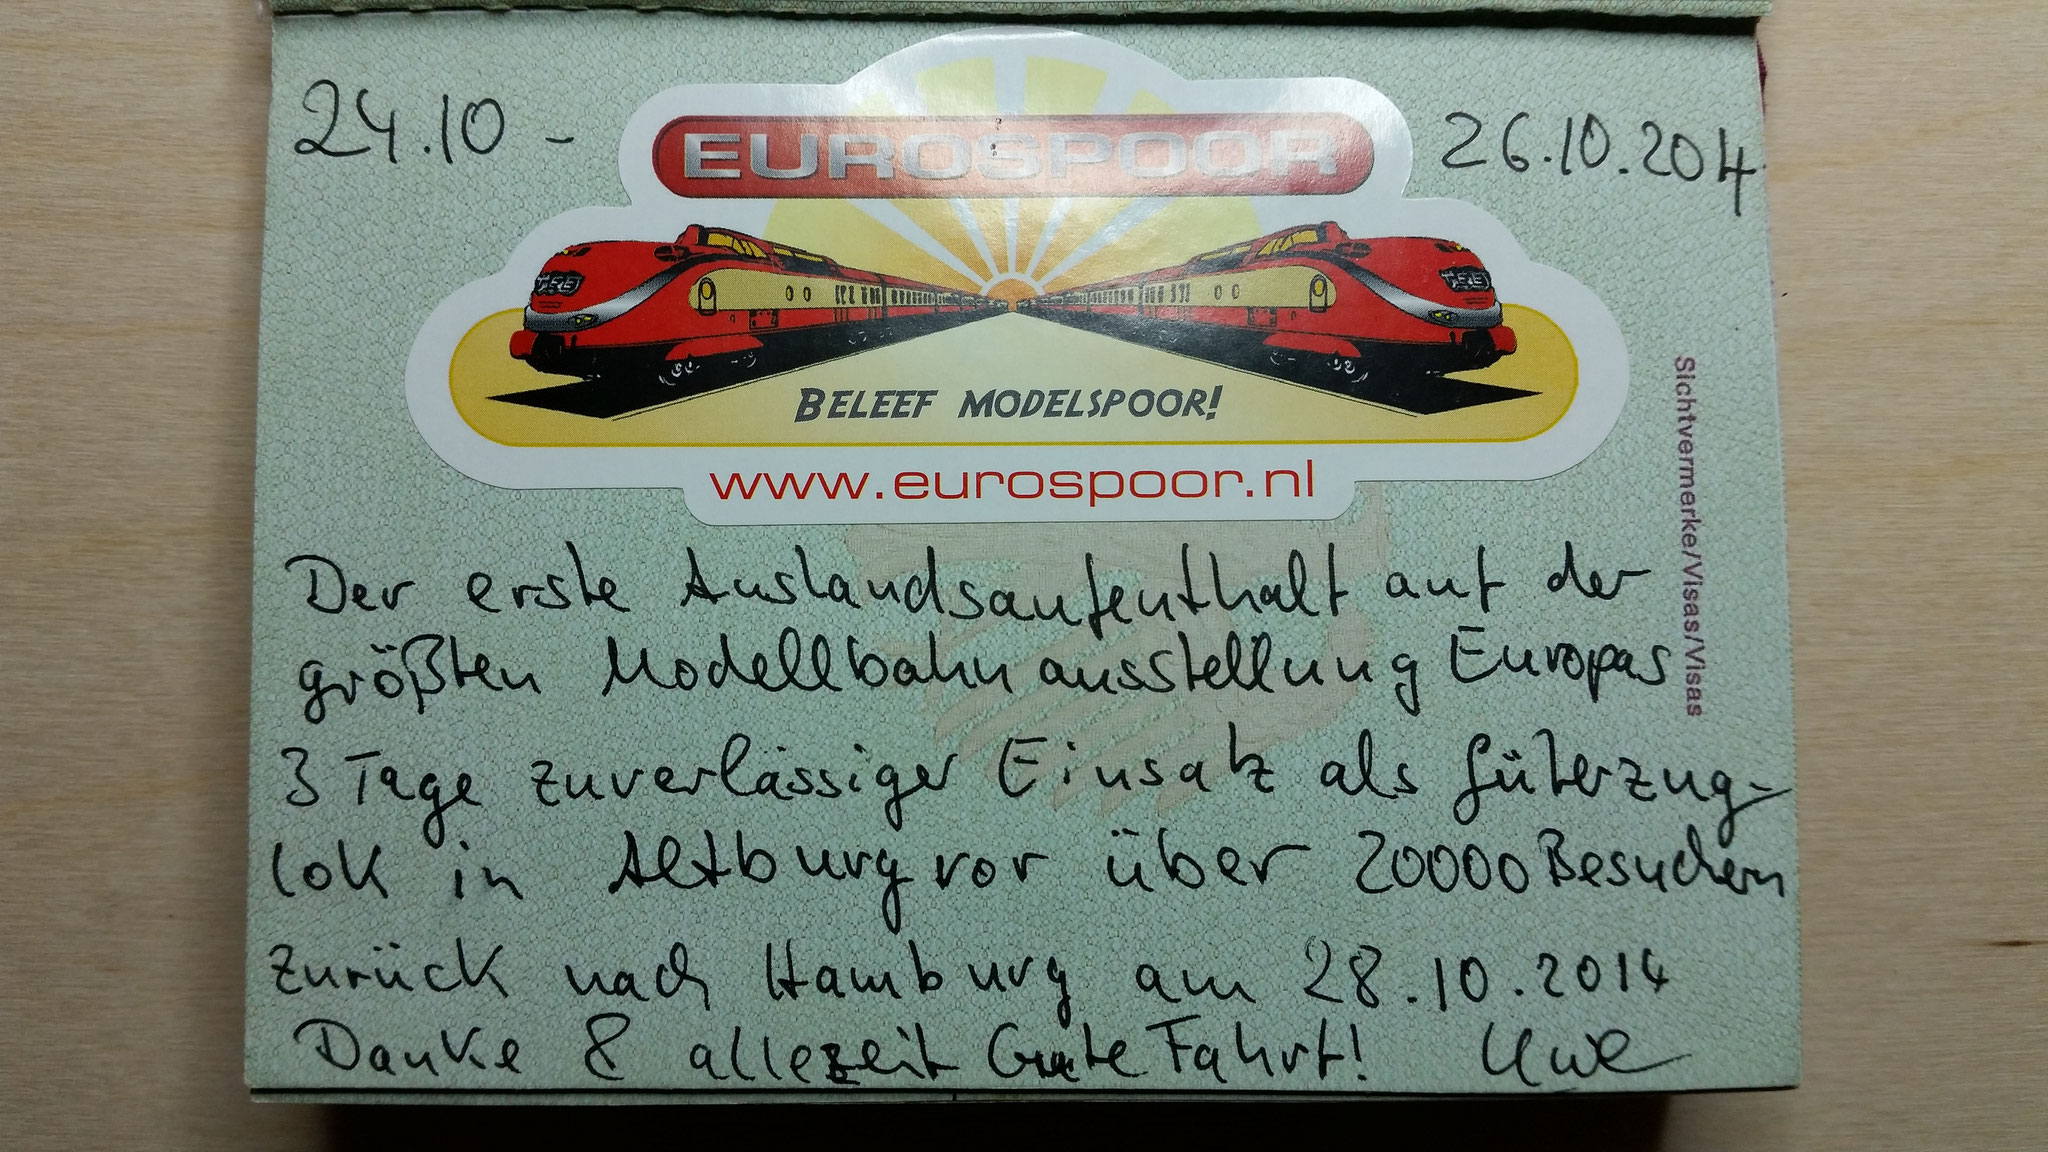 24.10 - 26.10.2014
EUROSPOOR
TEE TEE
BELEEF MODELSPOOR!
www.eurospoor.nl
Sichtvermerke/Visas/Visas
Der erste Auslandsaufenthalt auf der
größten Modellbahnausstellung Europas
3 Tage zuverlässiger Einsatz als Güterzug-
lok in Altburg vor über 20000 Besuchern
Zurück nach Hamburg am 28.10.2014
Danke & allezeit Gute Fahrt! Uwe